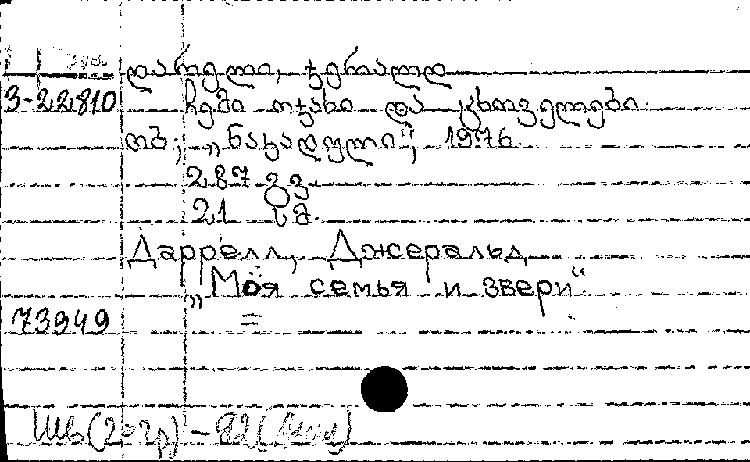 დარელი, ჯერალდ
3-22810 ჩემი ოჯახი და ცხოველები
თბ., „ნაკადული“, 1976
287 გვ.
21 სმ.
Даррелл, Джеральд
„Моя семья и звери“
73949 =